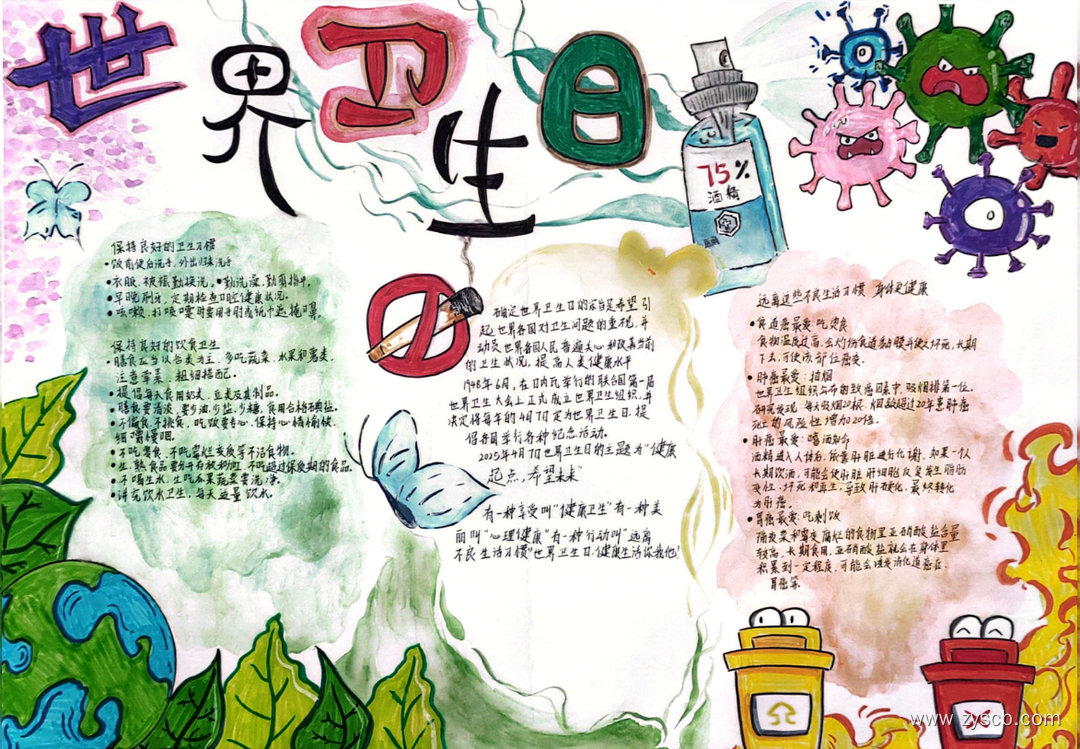 世界卫生日
75%
酒精
保持良好的卫生习惯
•饭前便后洗手,外出归来洗手
•衣服、被褥勤换洗,•勤洗澡,勤剪指甲。
•早晚刷牙,定期检查口腔健康状况。
•咳嗽、打喷嚏时要用手肘或纸巾遮掩嘴。
保持良好的饮食卫生
•膳食应当以谷类为主,多吃蔬菜、水果和薯类,
注意荤素、粗细搭配。
•提倡每天食用奶类、豆类及其制品。
•膳食要清淡,要少油,少盐,少糖,食用合格碘盐。
•不偏食、不挑食,吃饭要专心,保持心情愉快,
细嚼慢咽。
•不吃零食,不吃霉烂变质等不洁食物。
•生、熟食品要分开存放和加工,不吃超过保质期的食品。
•不喝生水,生吃瓜果蔬菜要洗净。
•讲究饮水卫生,每天适量饮水。
确定世界卫生日的宗旨是希望引
起世界各国对卫生问题的重视,并
动员世界各国人民普遍关心和改善当前
的卫生状况,提高人类健康水平
1948年6月,在日内瓦举行的联合国第一届
世界卫生大会上正式成立世界卫生组织,并
决定将每年的4月7日定为世界卫生日,提
倡各国举行各种纪念活动。
2025年4月7日世界卫生日的主题为“健康
起点,希望未来”
有一种享受叫“健康卫生”有一种美
丽叫“心理健康”有一种行动叫“远离
不良生活习惯”世界卫生日,健康生活你我他!
远离这些不良生活习惯 身体更健康
•食道癌最爱:吃烫食
食物温度过高,会灼伤食道黏膜并使之坏死,长期
下去,可使该部位癌变。
•肺癌最爱:抽烟
世界卫生组织公布的致癌因素中,吸烟排第一位。
研究发现,每天吸烟20根,烟龄超过20年患肺癌
死亡的风险性增加20倍。
•肝癌最爱:喝酒如命
酒精进入人体后,依靠肝脏进行代谢,如果一个人
长期饮酒,可能会使肝脏肝细胞反复发生脂肪
变性、坏死和再生,导致肝硬化,最终转化
为肝癌。
•胃癌最爱:吃剩饭
隔夜菜和霉变腐烂的食物里亚硝酸盐含量
较高,长期食用,亚硝酸盐就会在身体里
积累到一定程度,可能会诱发消化道癌症、
胃癌等。
www.zyscb.com